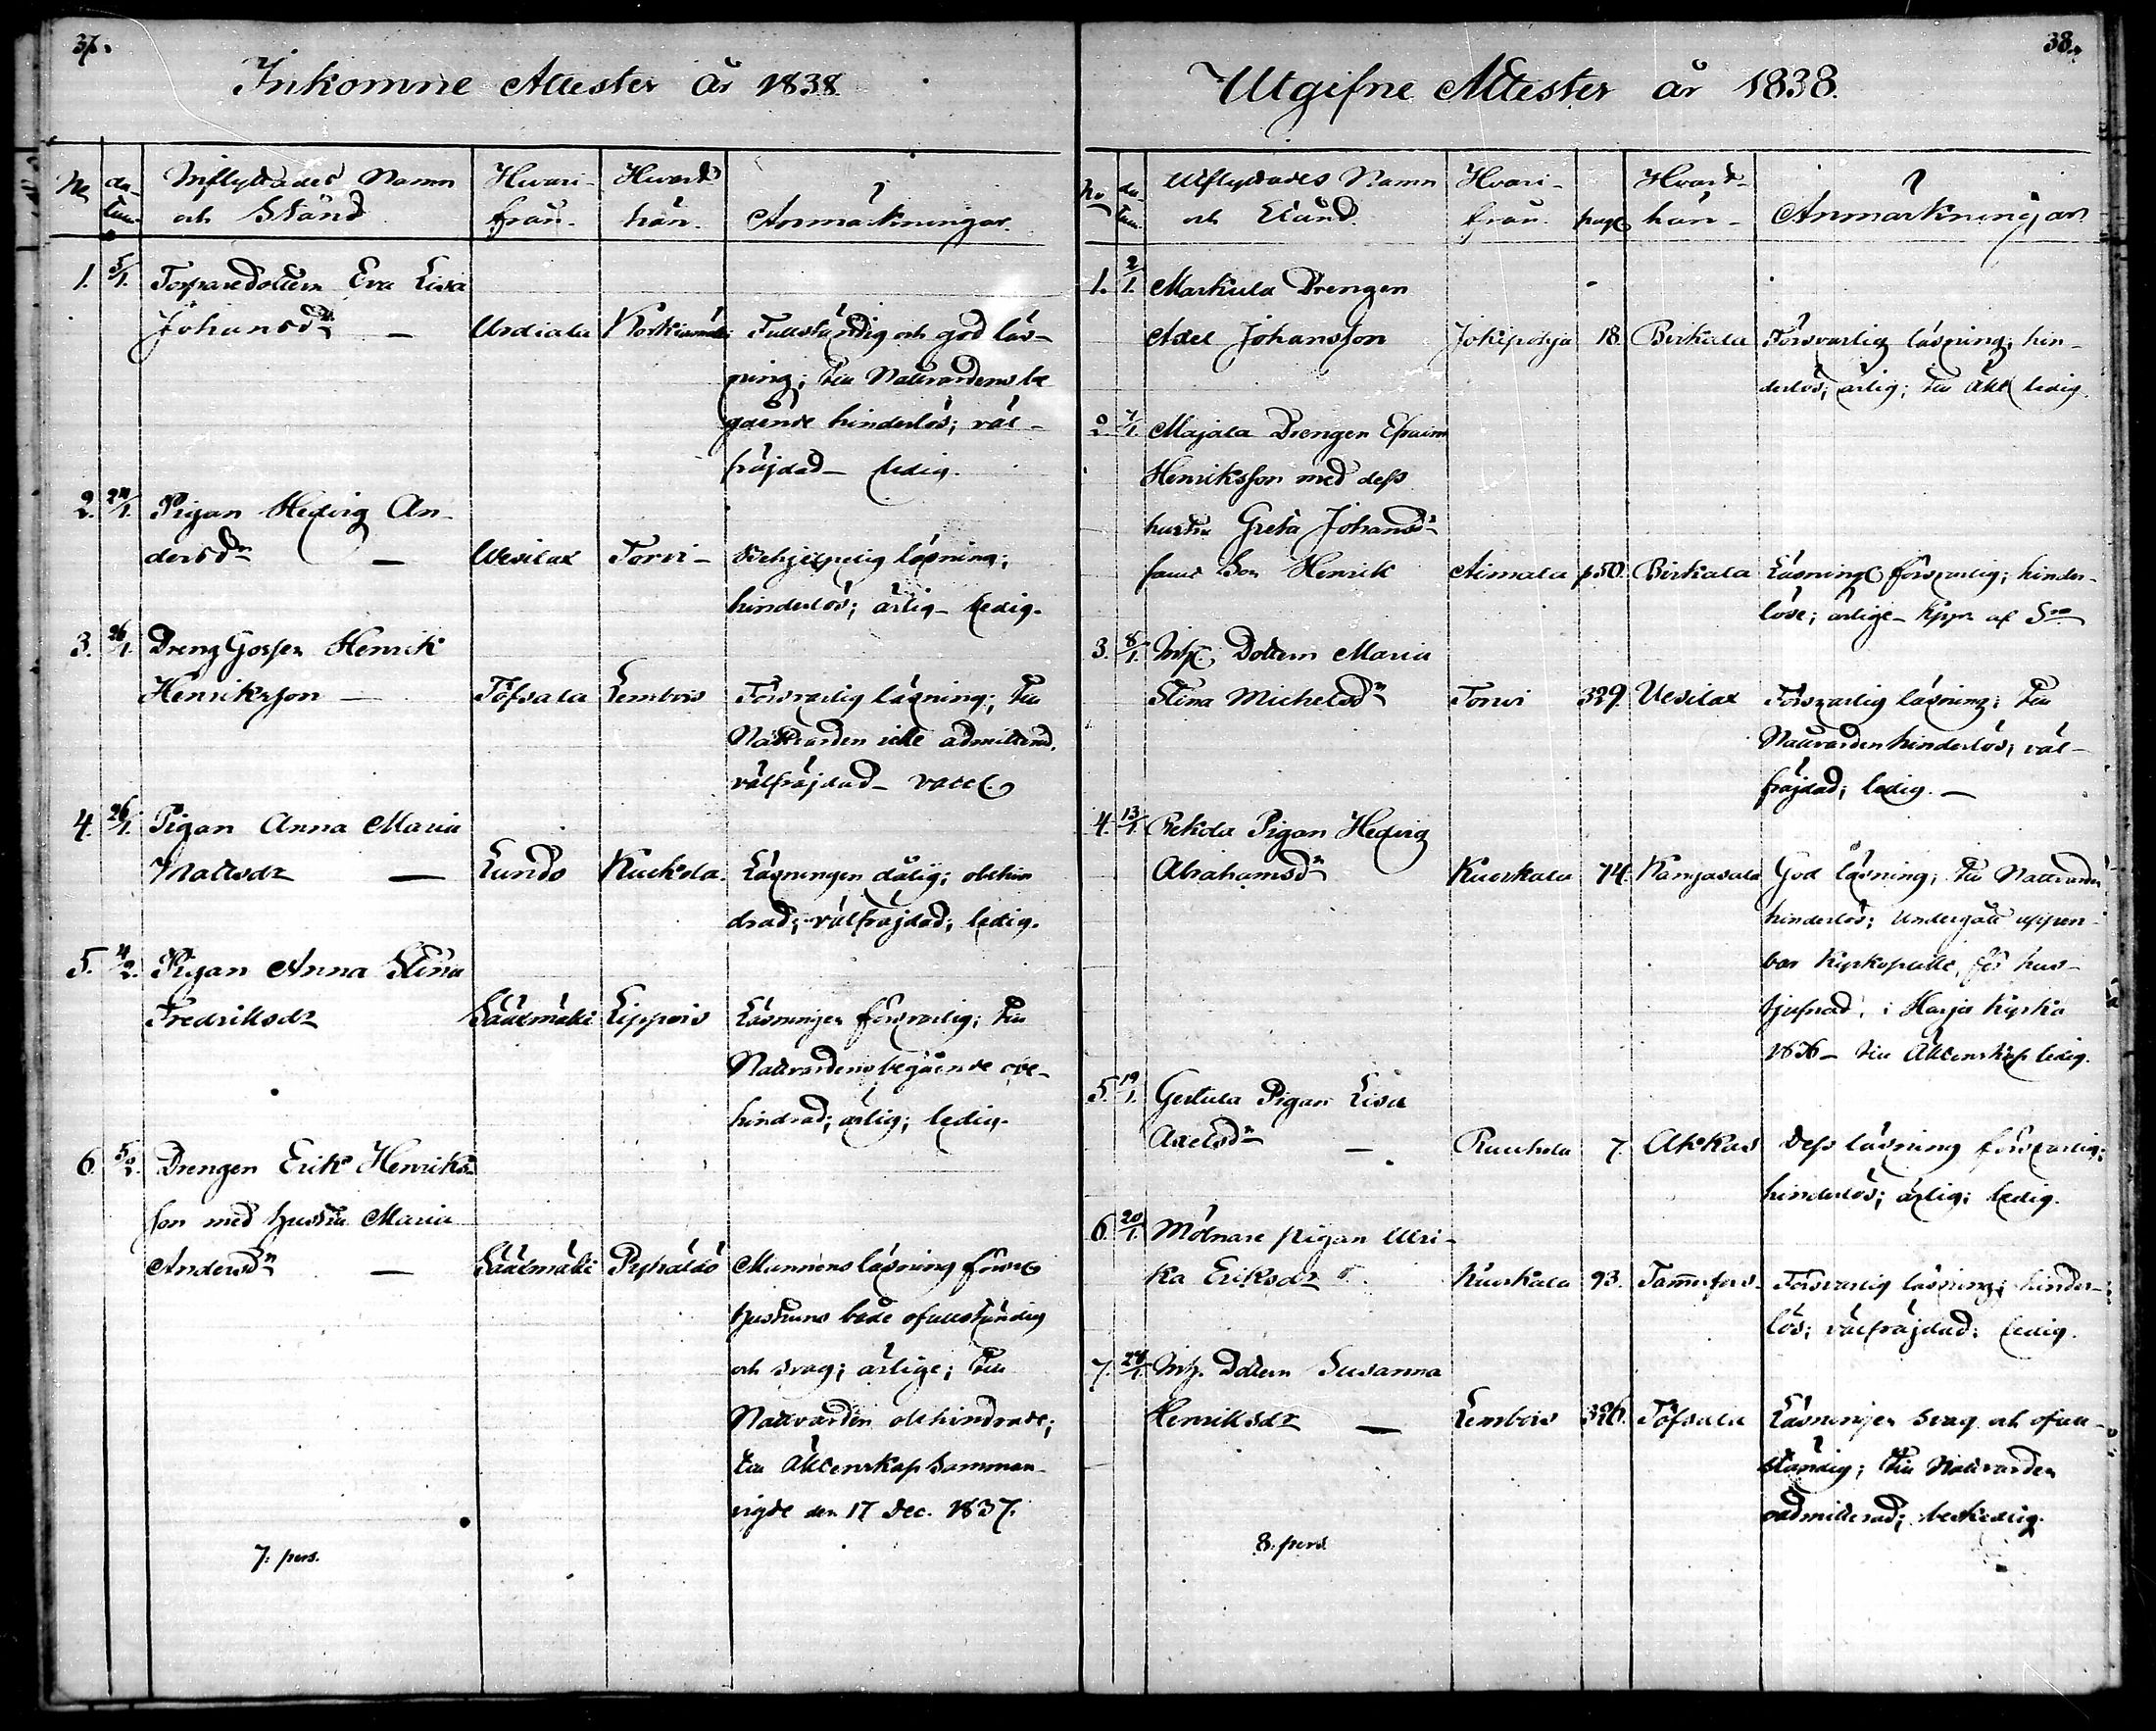 37.
Inkomne Attester år 1838
No
da-
tum
Inflyttades Namn
och Stånd
Hvari-
från.
Hvart-
hän.
Anmärkningar.
1. 5/1. Torparedottern Eva Lisa
Johansdr — Urdiala Fullständig och god läs-
ning; till Nattvardens be
gående hinderlös; väl-
fräjdad - ledig.
2. 24/1. Pigan Hedvig An-
dersdr — Vesilax Torvi - Behjelpelig läsning;
hinderlös; ärlig - ledig.
3. 26/1 Dreng Gossen Henrik
Henriksson — Töfsala Lembois Försvarlig läsning; till
Nattvarden icke admitterad.
välfräjdad - vacc.
4. 26/1. Pigan Anna Maria
Mattsdr — Lundo Kuckola. Läsningen dålig; obehin
drad; välfräjdad; ledig.
5. 4/2. Pigan Anna Stina
Fredriksdr Sääxmäki Lippois Läsningen försvarlig; till
Nattvardens begående obe-
hindrad; ärlig; ledig.
6. 5/2. Drengen Erik Henriks-
son med hustru Maria
Andersdr — Sääxmäki Pyhäldö Mannens läsning
hustruns både ofullständig
och svag; ärlige; till
Nattvarden obehindrade;
till Äktenskap samman-
vigde den 17 Dec. 1837.
7. pers.
38.
Utgifne Attester år 1838.
No
da-
tum
Utflyttades Namn
och Stånd.
Hvari-
från.
pag.
Hvart-
hän -
Anmärkningar
1. 2/1. Markula Drengen
Axel Johansson Jokipohja 18. Birkala Försvarlig läsning; hin-
derlös; ärlig; till Äkt. ledig.
2. 7/1. Majala Drengen Efraim
Henriksson med dess
hustru Greta Johansdr
samt Son Henrik Aimala p50. Birkala Läsning försvarlig; hinder-
löse; ärlige - af
3. 8/1. Inh. Dottern Maria
Stina Michelsdr Torvi 329. Vesilax Försvarlig läsning; till
Nattvarden hinderlös; väl-
fräjdad; ledig. —
4. 13/1. Rekola Pigan Hedvig
Abrahamsdr Kuorkala 74. Kangasala God läsning; till Nattvarden
hinderlös; undergått uppen-
bar Kyrkoplikt, för
tjufnad, i Harju Kyrka
1836 - till Äktenskap ledig.
5. 19/1. Gertula Pigan Lisa
Axelsdr — Ruuhola 7. Akkas Dess läsning försvarlig;
hinderlös; ärlig; ledig.
6. 20/1. Mölnare pigan Ulri-
ka Eriksdr Kuorkala 93. Tammerfors - Försvarlig läsning; hinder-
lös; välfräjdad; ledig.
7. 24/1. Inh. Dottern Susanna
Henriksdr — Lembois 326. Töfsala Läsningen svag och ofull-
ständig; till Nattvarden
admitterad; beskedlig.
8. pers.